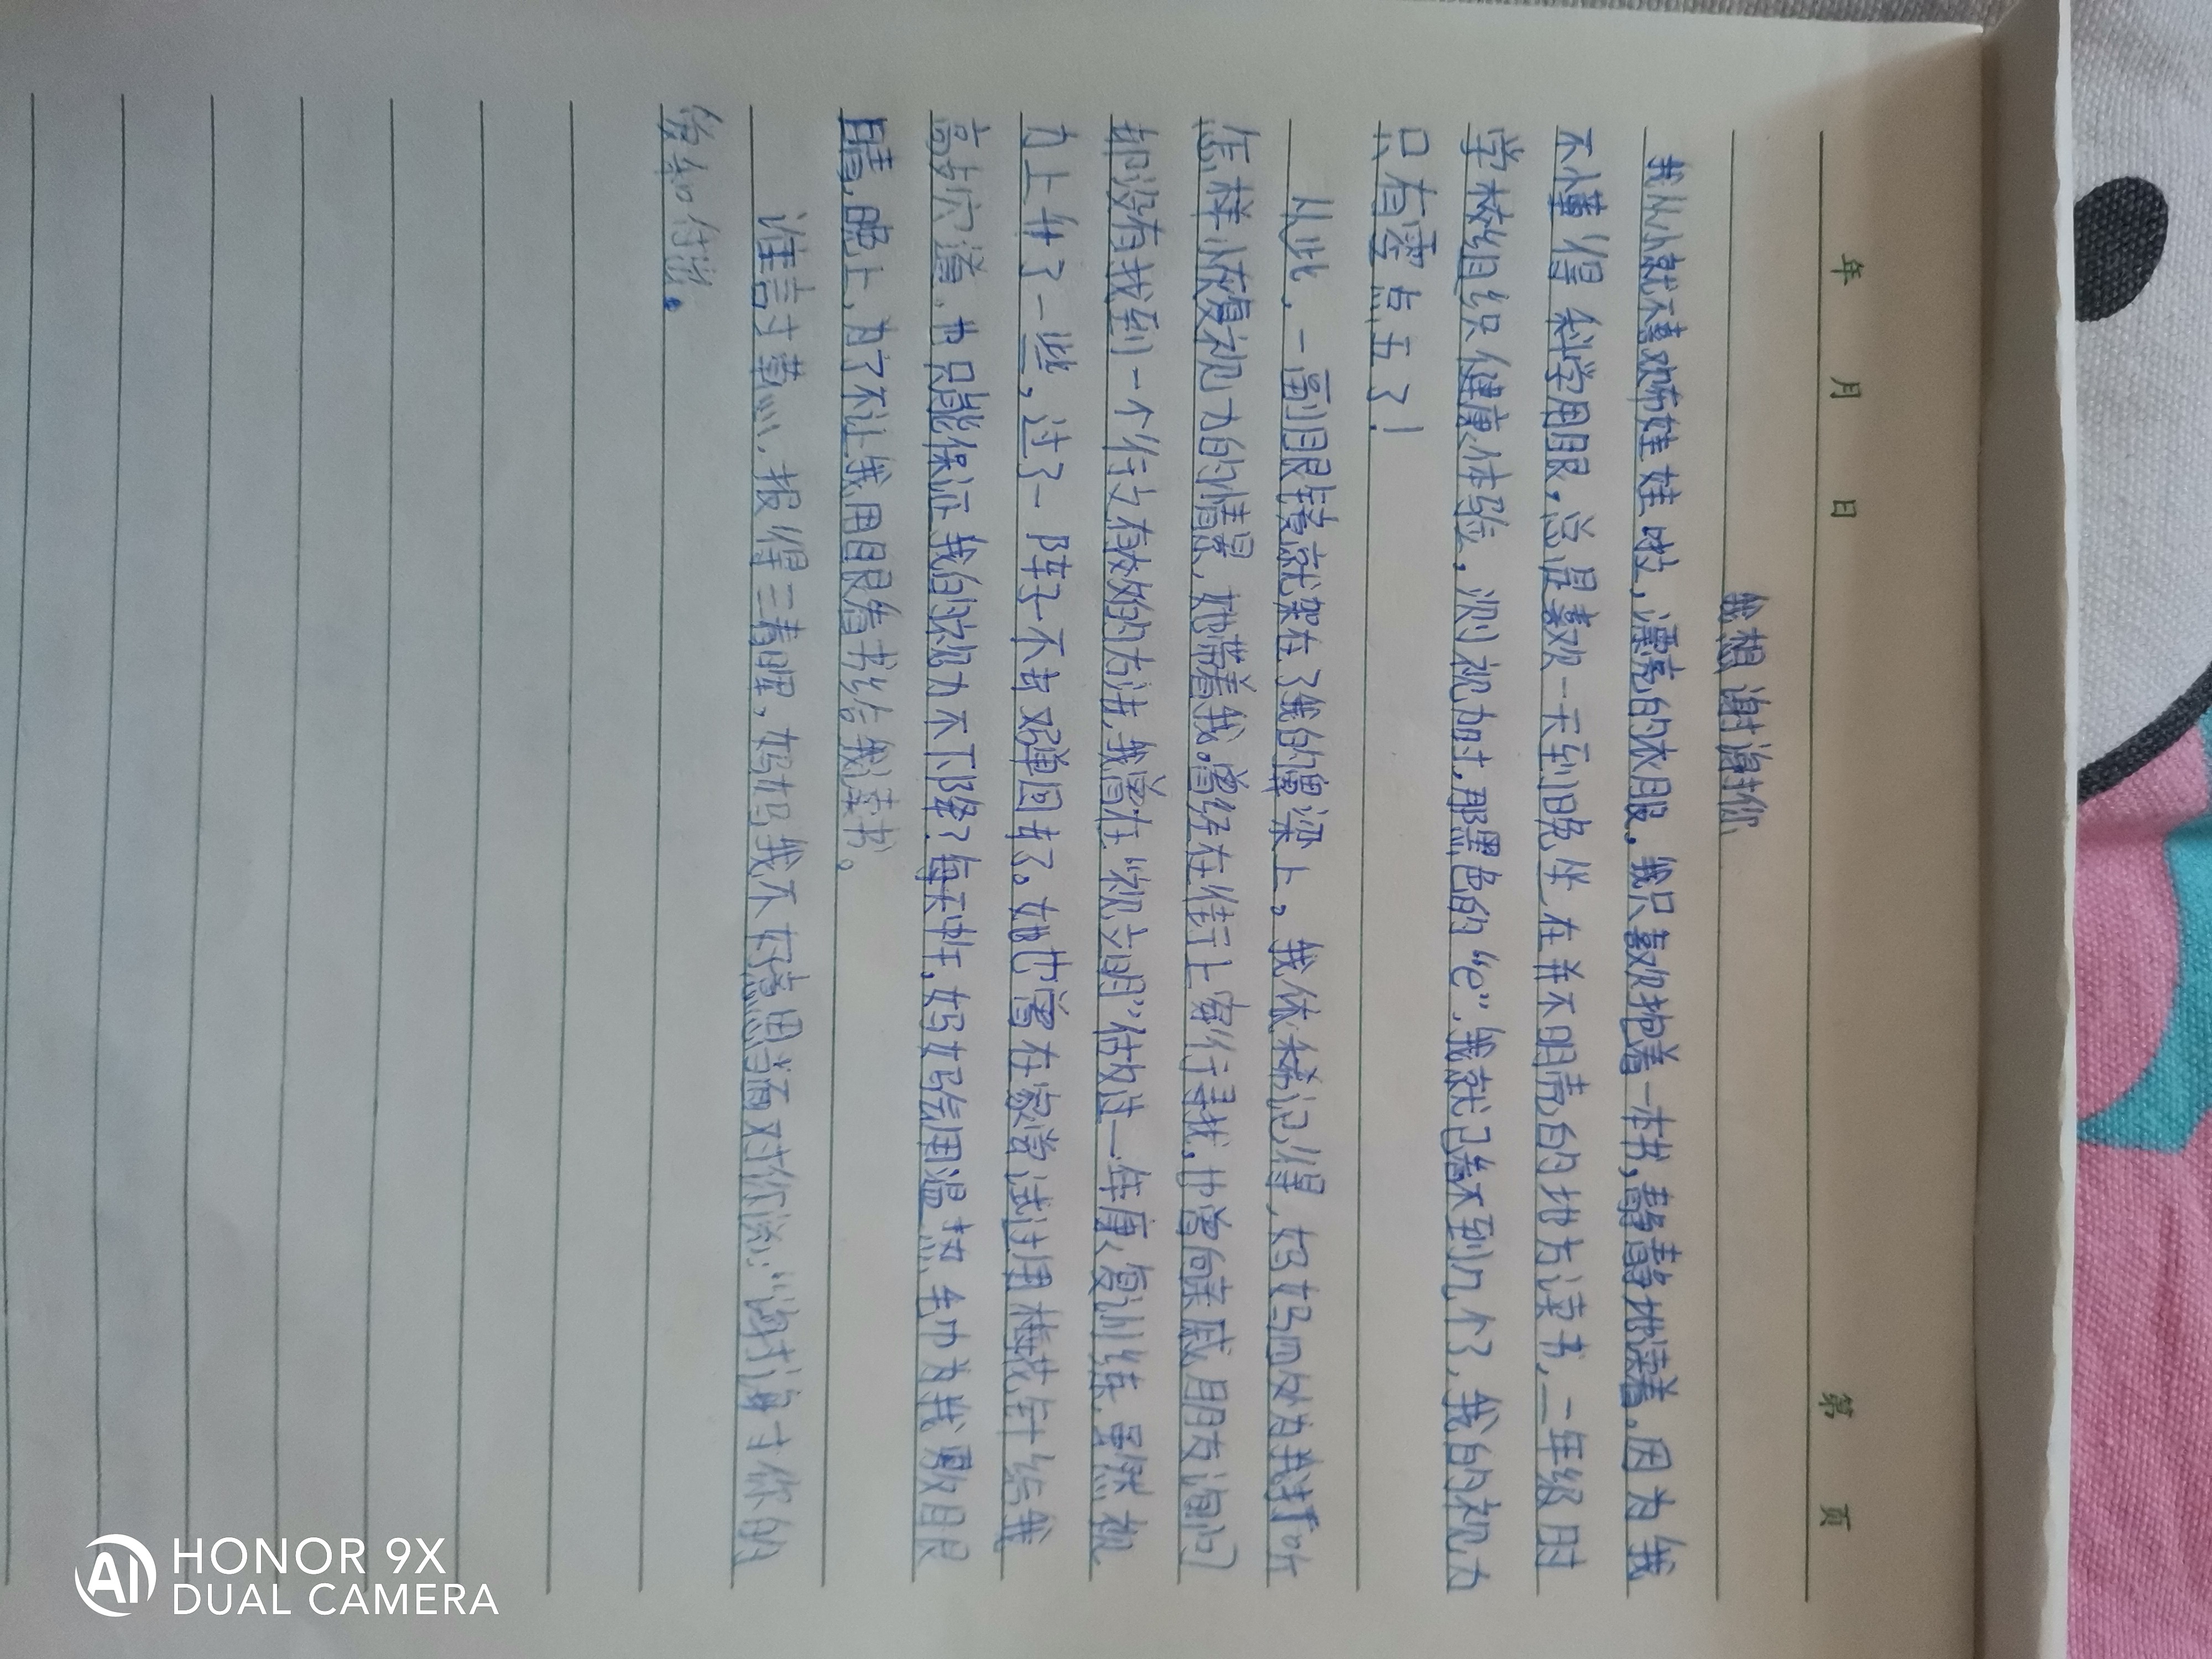 年 月 日 第 页
我想谢谢你
我从小就不喜欢布娃娃时,漂亮的衣服,我只喜欢抱着一本书,静静地读着。因为我
不懂得科学用眼,总是喜欢一天到晚坐在并不明亮的地方读书,二年级时
学校组织健康体验,测视力时,那黑色的“e”,我就已看不到几个了,我的视力
只有零点五了!
从此,一副眼镜就架在了我的鼻梁上。我依稀记得,妈妈四处为我打听
怎样恢复视力的情景,她带着我,曾经在街上穿行寻找,也曾向亲戚朋友询问
都没有找到一个行之有效的方法,我曾在“视立明”做过一年康复训练,虽然视
力上升了一些,过了一阵子不古又弹回来了。她也曾在家尝试过用梅花针给我
高扎穴道,也只能保证我的视力不下降?每天中午,妈妈给用温热毛巾为我敷眼
睛,晚上,为了不让我用眼看书给我读书。
谁言寸草心,报得三春晖,妈妈,我不好意思当面对你说:“谢谢妈妈你的
爱和付出。
HONOR 9X
DUAL CAMERA
AI